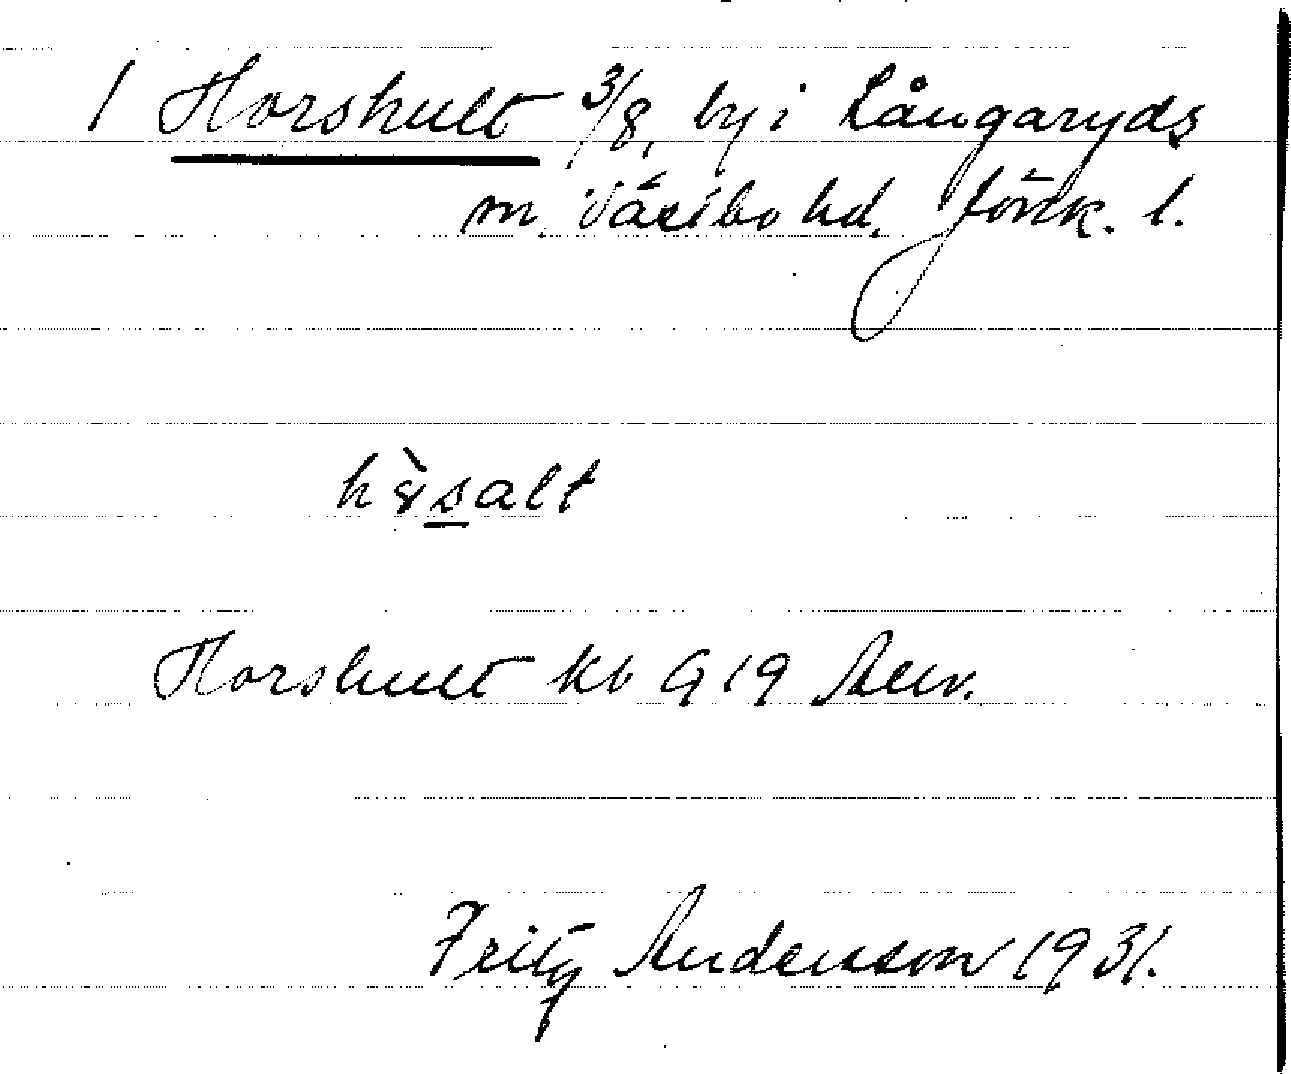 1 Horshult 3/8, by i Långaryds
m. Västbo hd, Jönk. l.
salt
Horshult kb G 19
Fritz Andersson 1931.